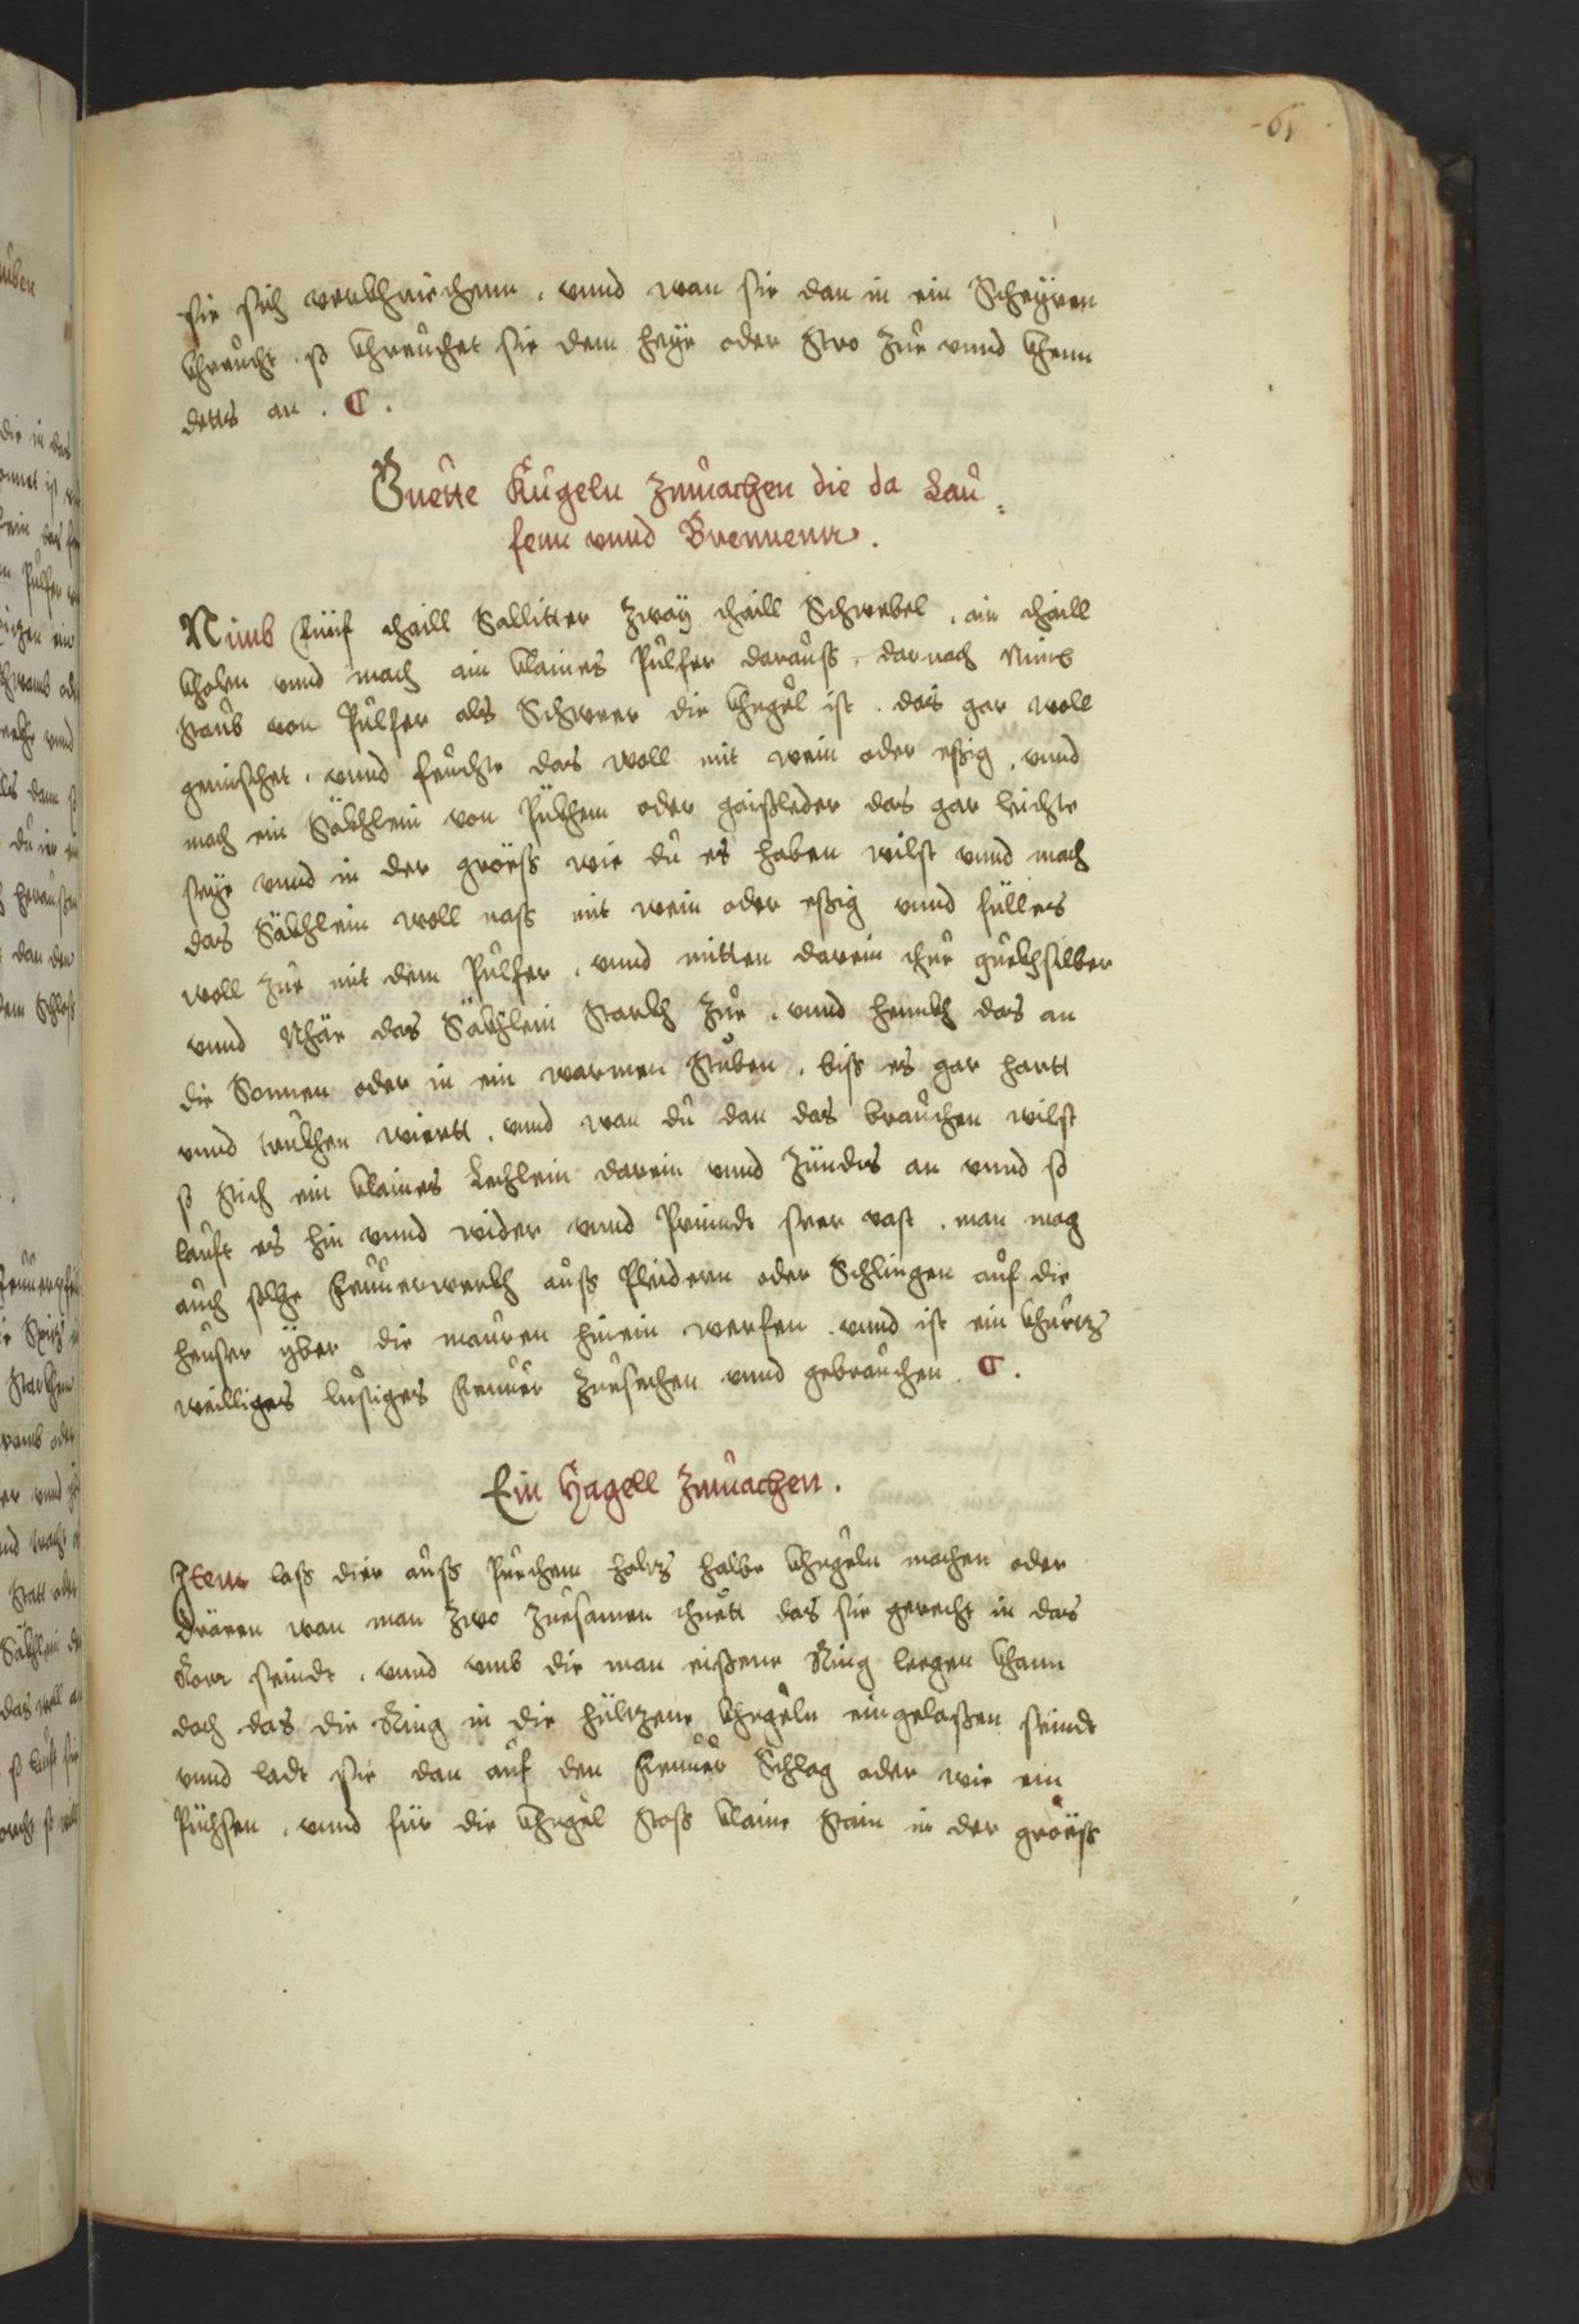 61
sie sich verkhriechenn . vnnd wan sie dan in ein Scheÿren
khreücht . so khreüchet sie dem heÿe oder Stro zue vnnd khenn
detts an . C .
Guette Kugeln zmachen die da Lau=
fenn vnnd Brennenn .
Nimb fünf thaill Sallitter zwaÿ thaill Schwebel . ain thaill
kholen vnnd mach ain klaines Pulfer darauß . darnach Nimb
staub von Pulfer als Schwer die khugel ist . das gar woll
gemischet . vnnd feuchte das woll mit wein oder eßig . vnnd
mach ein Säkhlein von Pükhem oder gaißleder das gar leichte
seÿe vnnd in der größs wie du es haben wilst vnnd mach
das Säkhlein woll naß mit wein oder eßig vnnd füll es
woll zue mit dem Pulfer . vnnd mitten darein thue quekhsilber
vnnd Nhäe das Säkhlein starkh zue . vnnd henkh das an
die Sonnen oder in ein warmen stuben . biß es gar hartt
vnnd trukhen wiertt . vnnd wan du dan das brauchen wilst
so stich ein klaines Lechlein darein vnnd zündts an vnnd so
lauft es hin vnnd wider vnnd Prinndt seer vast . man mag
auch solche Feuuerwerkh auß Pleidern oder Schlingen auf die
heuser über die mauren hinein werfen . vnnd ist ein khurtz
weilliges lustiges Feuuer zuesechen vnnd gebrauchen . C .
Ein Hagell zmachen .
Item laß dier auß Puechem holtz halbe khugeln machen oder
dräen wan man zwo zuesamen thuett das sie gerecht in das
Rorr seindt . vnnd vmb die man eißene Ring leegen khann
doch das die Ring in die hültzene khugeln eingelaßen seindt
vnnd ladt sie dan auf den Feuuer Schlag oder wie ein
Püchsen . vnnd für die khugel stoß klaine stain in der größs